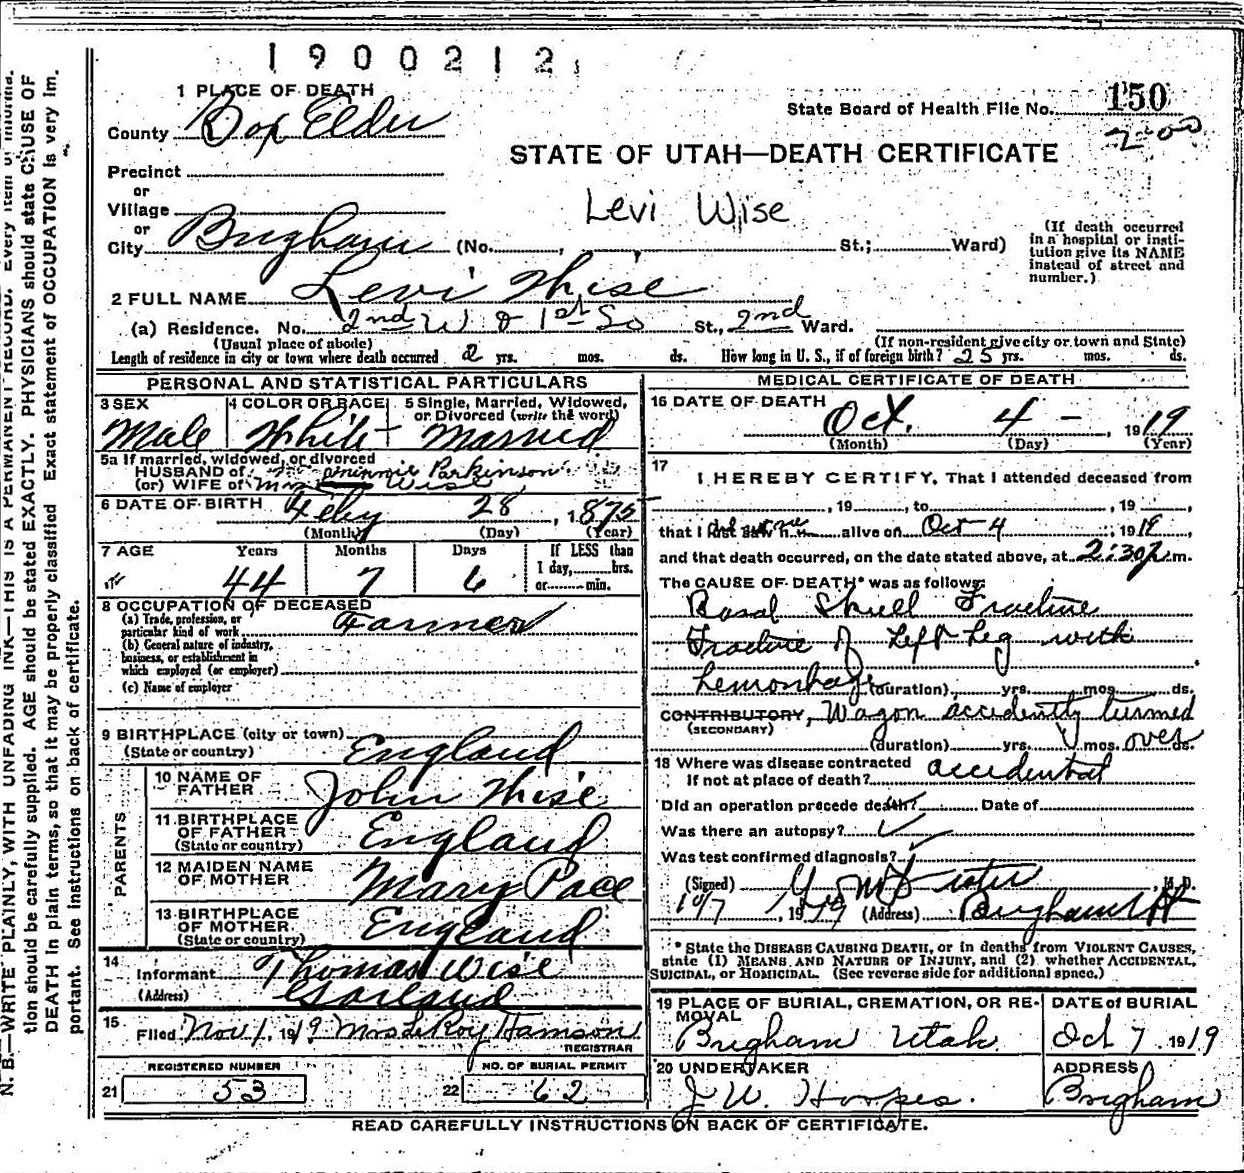 1900212
1 PLACE OF DEATH
County Box Elder
State Board of Health File No. 150
200
Precinct
STATE OF UTAH—DEATH CERTIFICATE
or
Village
Levi Wise
or
City Brigham (No. , St.; Ward)
(If death occurred in a hospital or institution give its NAME instead of street and number.)
2 FULL NAME Levi Wise
(a) Residence. No. 2nd W & 1st So St., 2nd Ward.
(Usual place of abode)
(If non-resident give city or town and State)
Length of residence in city or town where death occurred 2 yrs. mos. ds. How long in U. S., if of foreign birth? 25 yrs. mos. ds.
PERSONAL AND STATISTICAL PARTICULARS
3 SEX
Male
4 COLOR OR RACE
White
5 Single, Married, Widowed, or Divorced (write the word)
Married
5a If married, widowed, or divorced
HUSBAND of Minnie Parkinson
(or) WIFE of Mrs Wise
6 DATE OF BIRTH Feby 28, 1875
(Month) (Day) (Year)
7 AGE Years Months Days If LESS than
44 7 6 1 day, hrs.
or min.
8 OCCUPATION OF DECEASED
(a) Trade, profession, or
particular kind of work Farmer
(b) General nature of industry,
business, or establishment in
which employed (or employer)
(c) Name of employer
9 BIRTHPLACE (city or town)
(State or country) England
PARENTS
10 NAME OF
FATHER John Wise
11 BIRTHPLACE
OF FATHER
(State or country) England
12 MAIDEN NAME
OF MOTHER Mary Pace
13 BIRTHPLACE
OF MOTHER
(State or country) England
14
Informant Thomas Wise
(Address) Garland
15
Filed Nov 1, 1919 Mrs LeRoy Hamson
REGISTRAR
REGISTERED NUMBER
21 53
NO. OF BURIAL PERMIT
22 62
MEDICAL CERTIFICATE OF DEATH
16 DATE OF DEATH
Oct. 4 - , 1919
(Month) (Day) (Year)
17
I HEREBY CERTIFY, That I attended deceased from
, 19 , to , 19 ,
that I last saw h alive on Oct 4, 1919
and that death occurred, on the date stated above, at 2:30 p m.
The CAUSE OF DEATH* was as follows:
Basal Skull Fracture
Fracture of Left Leg with
hemorrhage (duration) yrs. mos. ds.
CONTRIBUTORY, Wagon accidently turned
(SECONDARY)
(duration) yrs. mos. over ds.
18 Where was disease contracted
if not at place of death? accidental
Did an operation precede death? Date of
Was there an autopsy?
Was test confirmed diagnosis?
(Signed) M. D.
10/7, 1919 (Address) Brigham Ut
* State the DISEASE CAUSING DEATH, or in deaths from VIOLENT CAUSES,
state (1) MEANS AND NATURE OF INJURY, and (2) whether ACCIDENTAL,
SUICIDAL, or HOMICIDAL. (See reverse side for additional space.)
19 PLACE OF BURIAL, CREMATION, OR REMOVAL
Brigham Utah
DATE of BURIAL
Oct 7, 1919
20 UNDERTAKER
J W.
ADDRESS
Brigham
READ CAREFULLY INSTRUCTIONS ON BACK OF CERTIFICATE.
N. B.—WRITE PLAINLY, WITH UNFADING INK—THIS IS A PERMANENT RECORD. Every item of informa-
tion should be carefully supplied. AGE should be stated EXACTLY. PHYSICIANS should state CAUSE OF
DEATH in plain terms, so that it may be properly classified Exact statement of OCCUPATION is very im-
portant. See Instructions on back of certificate.